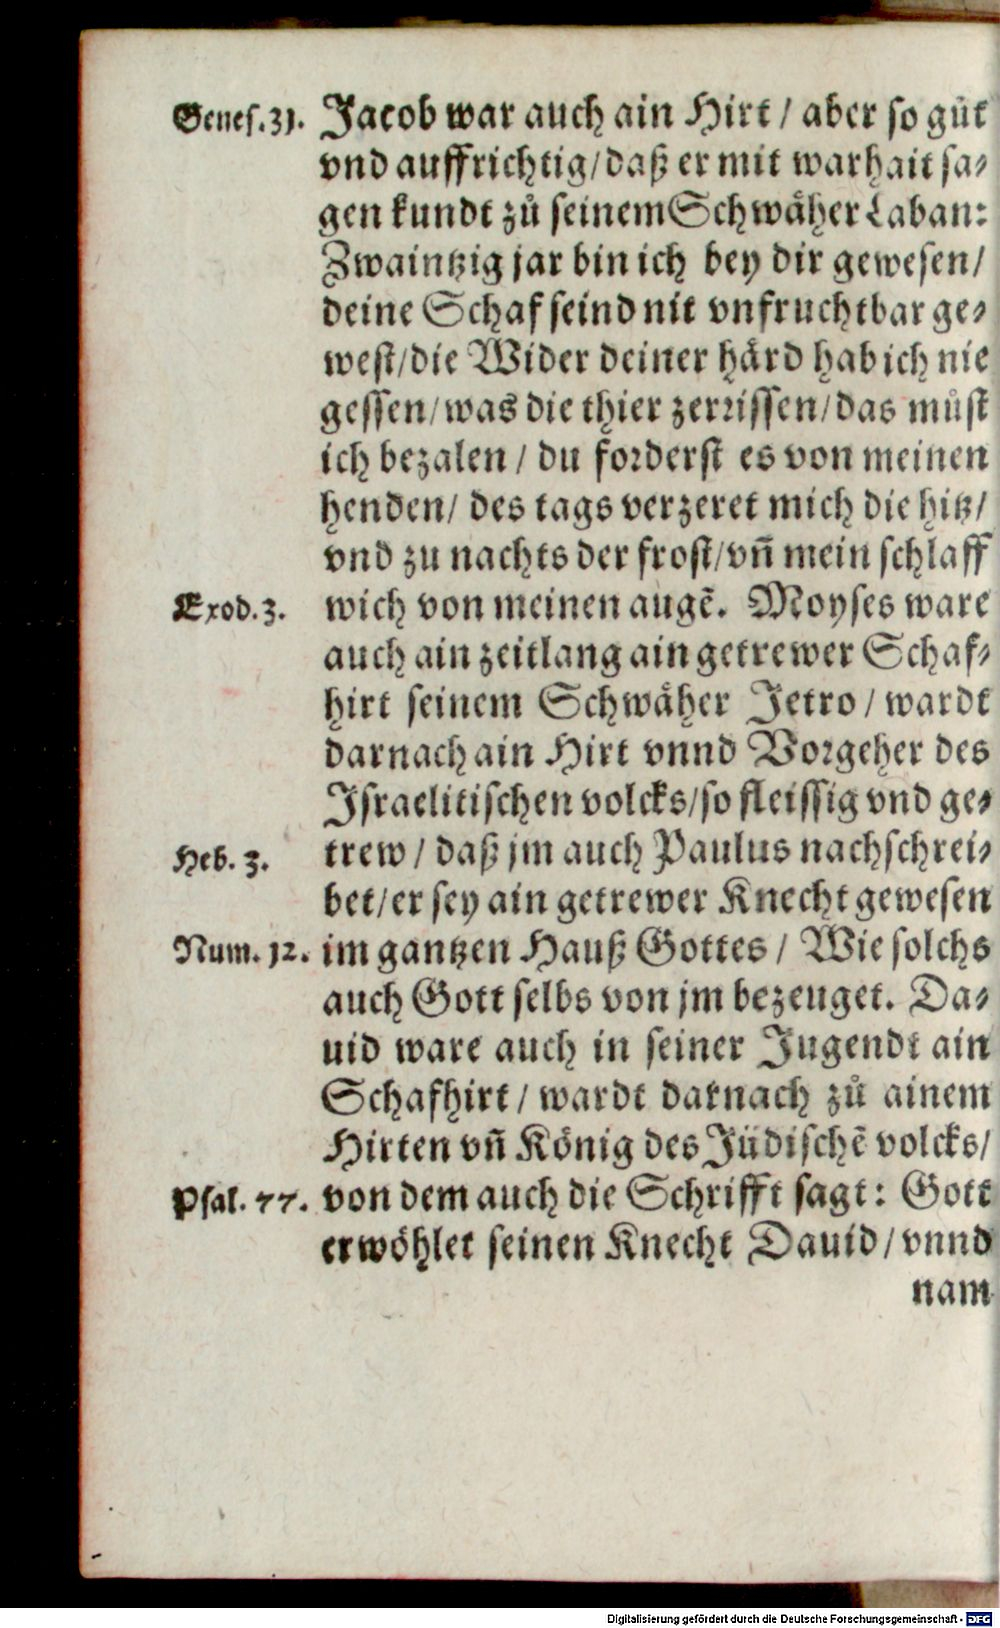 Genes.31. Jacob war auch ain Hirt / aber so gůt
vnd auffrichtig/daß er mit warhait sa-
gen kundt zů seinem Schwäher Laban:
Zwaintzig jar bin ich bey dir gewesen/
deine Schaf seind nit vnfruchtbar ge-
west/die Wider deiner härd hab ich nie
gessen/was die thier zerrissen/das můst
ich bezalen / du forderst es von meinen
henden/ des tags verzeret mich die hitz/
vnd zu nachts der frost/vn̄ mein schlaff
Exod.3. wich von meinen augē. Moyses ware
auch ain zeitlang ain getrewer Schaf-
hirt seinem Schwäher Jetro / wardt
darnach ain Hirt vnnd Vorgeher des
Israelitischen volcks/so fleissig vnd ge-
Heb. 3. trew / daß jm auch Paulus nachschrei-
bet/er sey ain getrewer Knecht gewesen
Num. 12. im gantzen Hauß Gottes / Wie solchs
auch Gott selbs von jm bezeuget. Da-
uid ware auch in seiner Jugendt ain
Schafhirt / wardt darnach zů ainem
Hirten vn̄ König des Jüdischē volcks/
Psal. 77. von dem auch die Schrifft sagt: Gott
erwöhlet seinen Knecht Dauid / vnnd
nam
Digitalisierung gefördert durch die Deutsche Forschungsgemeinschaft - DFG